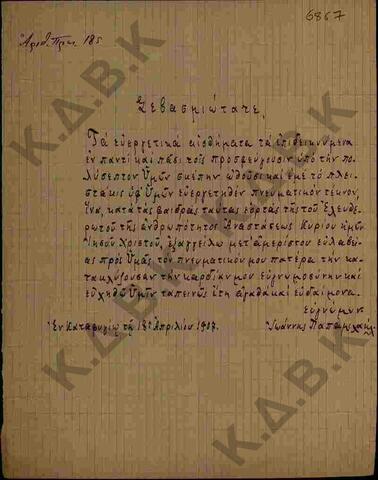 6867
Ἀριθ. Πρωτ. 185
Σεβασμιώτατε,
Τὰ εὐεργετικὰ αἰσθήματα τὰ ἐπιδεικνυόμενα
ἐν παντὶ καὶ πᾶσι τοῖς προσφεύγουσιν ὑπὸ τὴν πο-
λύσεπτον Ὑμῶν σκέπην ὠθοῦσι καὶ ἐμὲ τὸ πλει-
στάκις ὑφ' Ὑμῶν εὐεργετηθὲν πνευματικὸν τέκνον,
ἵνα, κατὰ τὰς φαιδρὰς ταύτας ἑορτὰς τῆς τοῦ Ἐλευθε-
ρωτοῦ τῆς ἀνθρωπότητος Ἀναστάσεως Κυρίου ἡμῶν
Ἰησοῦ Χριστοῦ, ἐξαγγείλω μετ' ἀμερίστου εὐλαβείας
πρὸς Ὑμᾶς τὸν πνευματικόν μου πατέρα τὴν κα-
τακλύζουσαν τὴν καρδίαν μου εὐγνωμοσύνην καὶ
εὐχηθῶ Ὑμῖν ταπεινῶς ἔτη ἀγαθὰ καὶ εὐδαίμονα.
Εὐγνώμων
Ἐν Καταφυγίῳ τῇ 18ῃ Ἀπριλίου 1907. Ἰωάννης Παπαμιχαήλ
Κ.Δ.Β.Κ
Κ.Δ.Β.Κ
Κ.Δ.Β.Κ